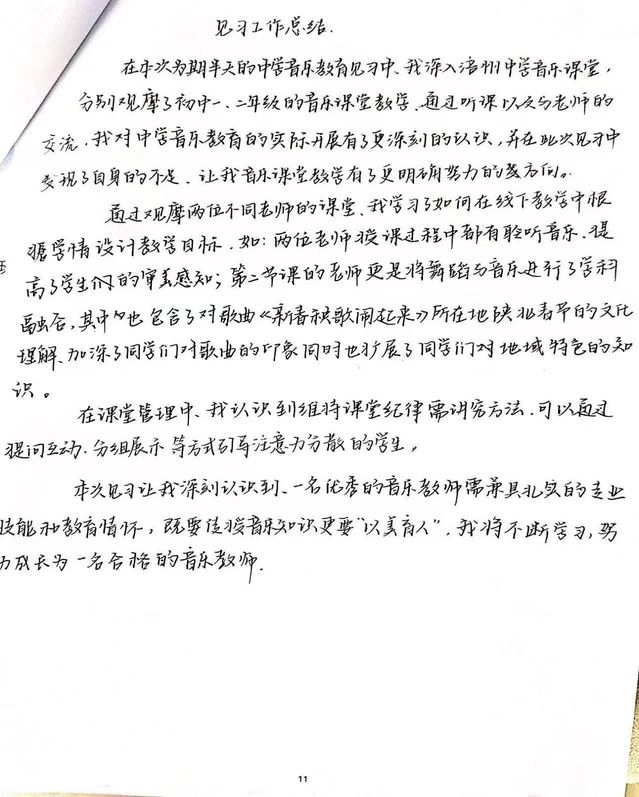 见习工作总结.
在本次为期半天的中学音乐教育见习中、我深入涪州中学音乐课堂,
分别观摩了初中一、二年级的音乐课堂教学.通过听课以及与老师的
交流,我对中学音乐教育的实际开展有了更深刻的认识,并在此次见习中
发现了自身的不足、让我音乐课堂教学有了更明确努力的方向。
通过观摩两位不同老师的课堂、我学习了如何在线下教学中根
据学情设计教学目标.如:两位老师授课过程中都有聆听音乐、提
高了学生们的审美感知;第二节课的老师更是将舞蹈与音乐进行了学科
融合,其中也包含了对歌曲《新春秧歌闹起来》所在地陕北春节的文化
理解、加深了同学们对歌曲的印象同时也扩展了同学们对地域特色的知
识。
在课堂管理中、我认识到维持课堂纪律需讲究方法.可以通过
提问互动.分组展示等方式引导注意力分散的学生。
本次见习让我深刻认识到、一名优秀的音乐教师需兼具扎实的专业
技能和教育情怀,既要传授音乐知识更要"以美育人".我将不断学习,努
力成长为一名合格的音乐教师.
11